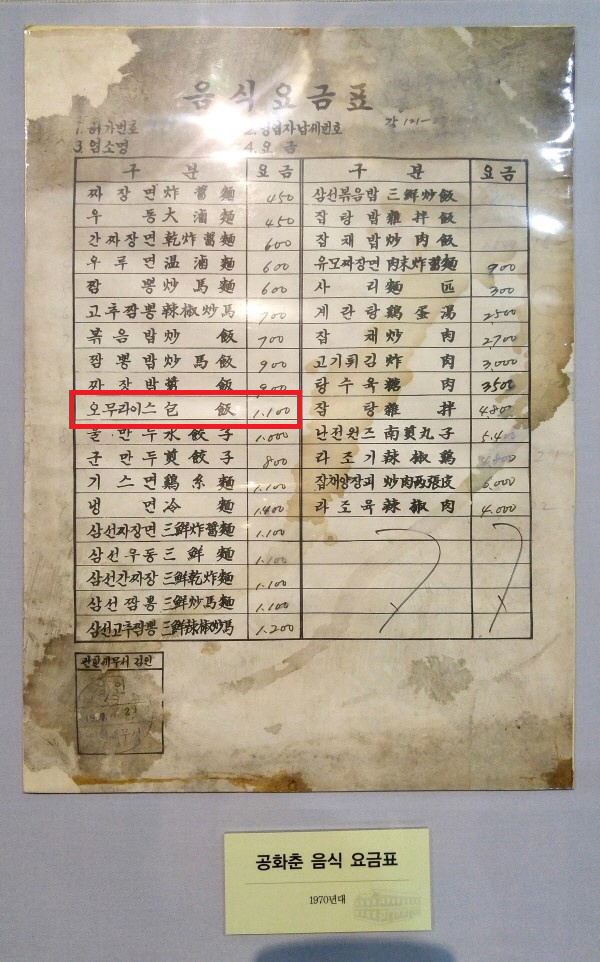 음식요금표
1. 허가번호 2. 영업자납세번호 각 121-
3. 업소명 4. 요금
구 분 요금 구 분 요금
짜장면 炸醬麵 450 삼선볶음밥 三鮮炒飯
우동 大滷麵 450 잡탕밥 雜拌飯
간짜장면 乾炸醬麵 600 잡채밥 炒肉飯
우루면 温滷麵 600 유모짜장면 肉末炸醬麵 900
짬뽕 炒馬麵 600 사리 麵 300
고추짬뽕 辣椒炒馬 700 계란탕 鷄蛋湯 2500
볶음밥 炒飯 700 잡채 炒肉 2700
짬뽕밥 炒馬飯 900 고기튀김 炸肉 3,000
짜장밥 醬飯 900 탕수육 糖肉 3500
오무라이스 包飯 1.100 잡탕 雜拌 480
물만두 水餃子 1.000 난전완즈 南煎丸子 5.4
군만두 煎餃子 800 라조기 辣椒鷄
기스면 鷄糸麵 1.100 잡채양장피 炒肉両張皮 6.000
냉면 冷麵 1.400 라조육 辣椒肉 4.000
삼선짜장면 三鮮炸醬麵 1.100
삼선우동 三鮮麵 1.100
삼선간짜장 三鮮乾炸麵 1.100
삼선짬뽕 三鮮炒馬麵 1.100
삼선고추짬뽕 三鮮辣椒炒馬 1.200
관할세무서 검인
공화춘 음식 요금표
1970년대